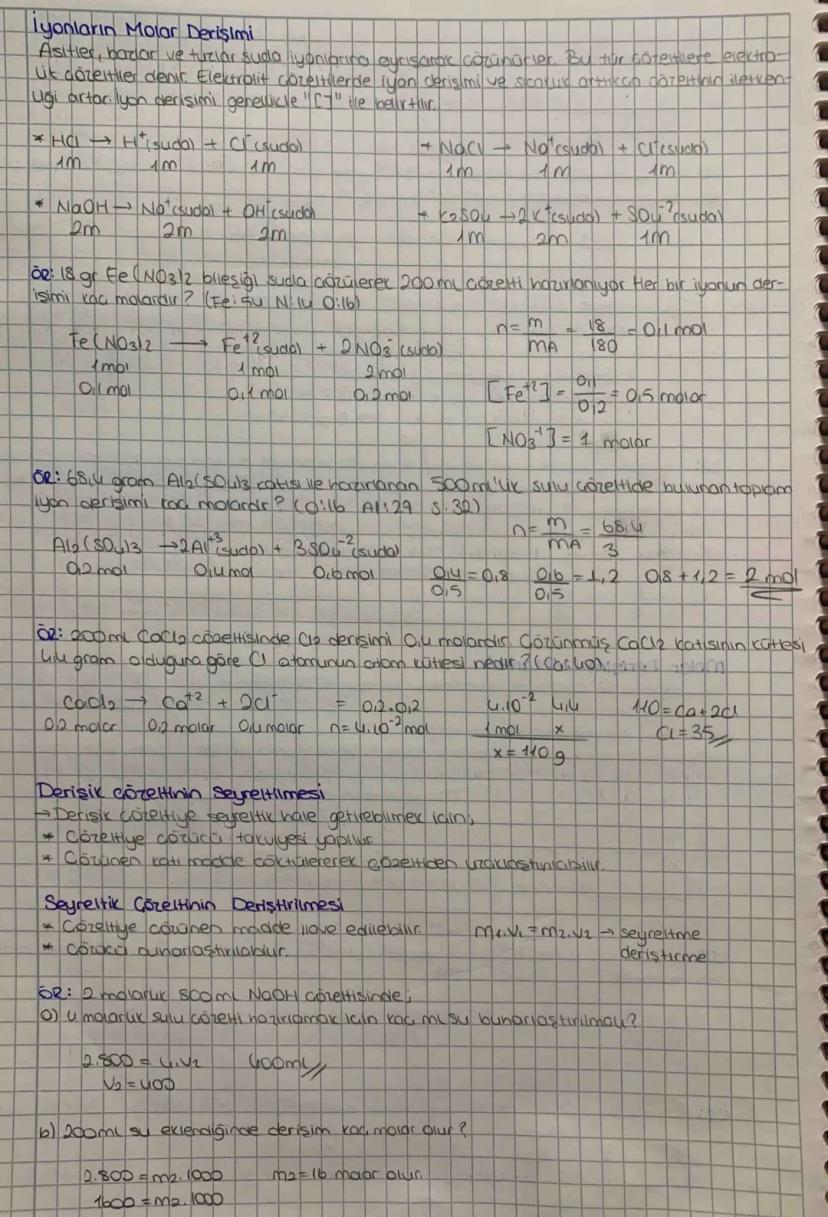 İyonların Molar Derişimi
Asitler, bazlar ve tuzlar suda iyonlarına ayrışarak çözünürler. Bu tür çözeltilere elektro-
lit çözeltiler denir. Elektrolit çözeltilerde iyon derişimi ve sıcaklık arttıkça çözeltinin iletken-
liği artar. İyon derişimi genellikle "[ ]" ile belirtilir.
* HCl → H⁺(suda) + Cl⁻(suda)
1M 1M 1M
* NaCl → Na⁺(suda) + Cl⁻(suda)
1m 1m 1m
* NaOH → Na⁺(suda) + OH⁻(suda)
2m 2m 2m
* K2SO4 → 2K⁺(suda) + SO4⁻²(suda)
1M 2m 1M
ÖR: 18 gr Fe(NO3)2 bileşiği suda çözülerek 200 mL çözelti hazırlanıyor. Her bir iyonun der-
işimi kaç molardır? (Fe: 54 N: 14 O: 16)
Fe(NO3)2 → Fe⁺²(suda) + 2NO3⁻(suda)
1mol 1mol 2mol
0,1 mol 0,1 mol 0,2 mol
n = m/MA = 18/180 = 0,1 mol
[Fe⁺²] = 0,1/0,2 = 0,5 molar
[NO3⁻¹] = 1 molar
ÖR: 68,4 gram Al2(SO4)3 katısı ile hazırlanan 500 ml'lik sulu çözeltide bulunan toplam
iyon derişimi kaç molardır? (O: 16 Al: 27 S: 32)
Al2(SO4)3 → 2Al⁺³(suda) + 3SO4⁻²(suda)
0,2 mol 0,4 mol 0,6 mol
n = m/MA = 68,4/3
0,4/0,5 = 0,8 0,6/0,5 = 1,2 0,8 + 1,2 = 2 mol
ÖR: 200 mL CaCl2 çözeltisinde Cl2 derişimi 0,4 molardır. Çözünmüş CaCl2 katısının kütlesi
4,4 gram olduğuna göre Cl atomunun atom kütlesi nedir? (Ca: 40)
CaCl2 → Ca⁺² + 2Cl⁻ = 0,2.0,2
0,2 molar 0,2 molar 0,4 molar n = 4.10⁻² mol
4.10⁻² 4,4
1 mol x
x = 110 g
110 = Ca + 2Cl
Cl = 35
Derişik Çözeltinin Seyreltilmesi
→ Derişik çözeltiye seyreltik hale getirebilmek için;
* Çözeltiye çözücü takviyesi yapılır.
* Çözünen katı madde çöktülererek çözeltiden uzaklaştırılabilir.
Seyreltik Çözeltinin Deriştirilmesi
* Çözeltiye çözünen madde ilave edilebilir.
* Çözücü buharlaştırılabilir.
m1.V1 = m2.V2 → seyreltme
deriştirme
ÖR: 2 molarlık 800 mL NaOH çözeltisinde;
a) 4 molarlık sulu çözelti hazırlamak için kaç ml su buharlaştırılmalı?
2.800 = 4.V2 400mL
V2 = 400
b) 200 mL su eklendiğinde derişim kaç molar olur?
2.800 = m2.1000 m2 = 16 molar olur.
1600 = m2.1000